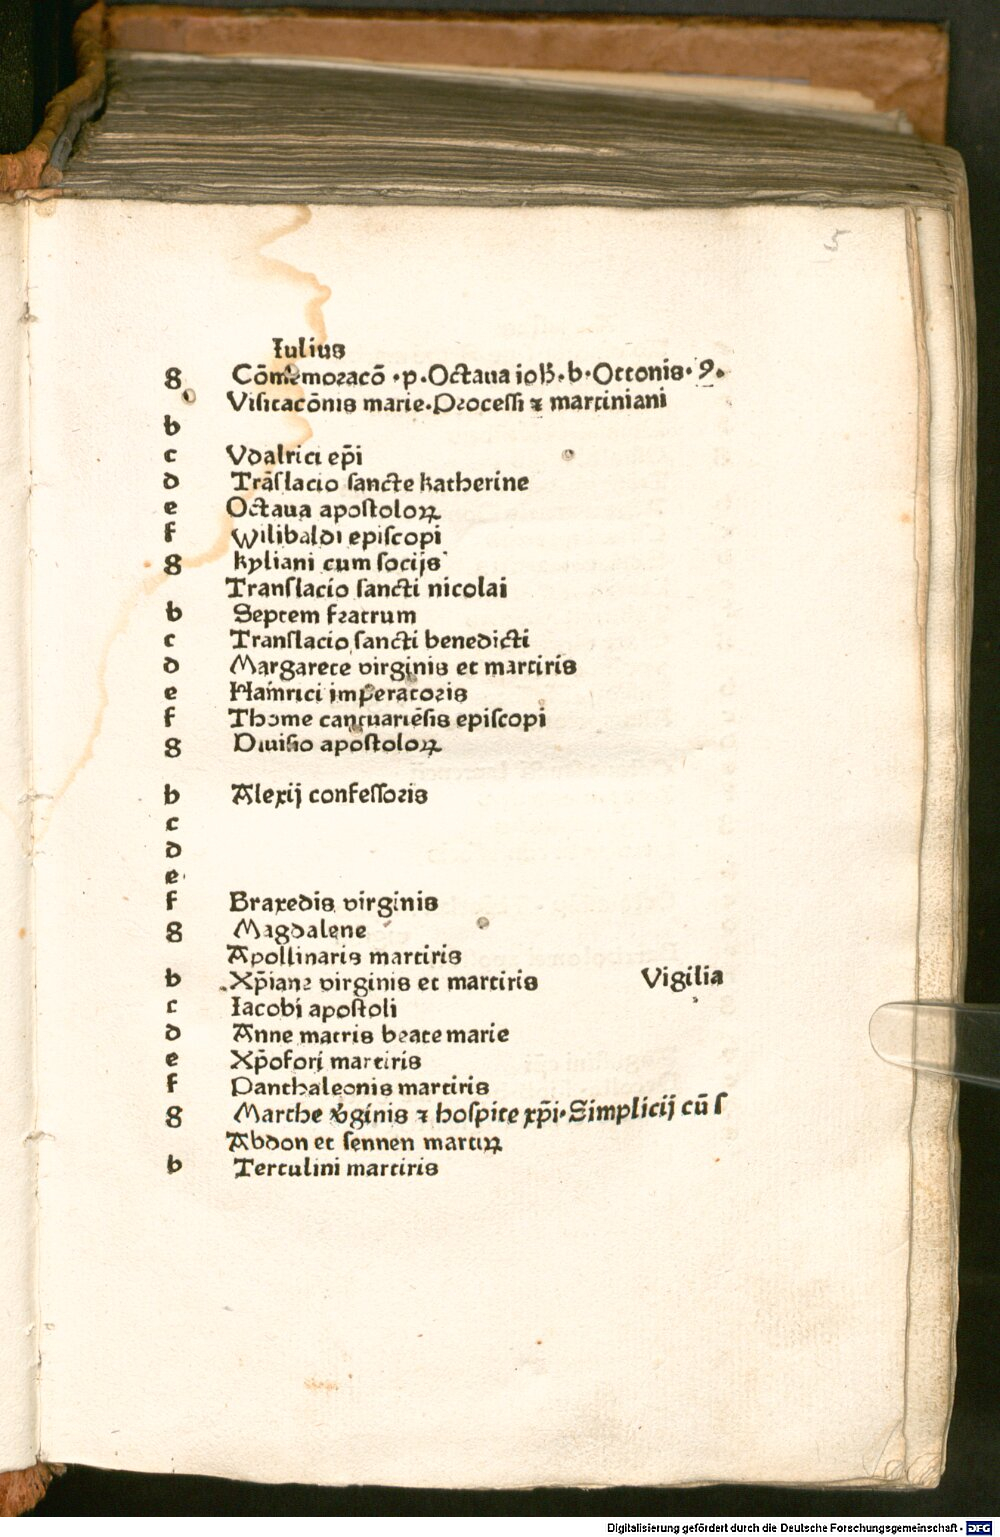 5
Iulius
g Cōmemoracō · p · Octaua ioħ · b · Ottonis · 9 ·
Visitacōnis marie · Processi ⁊ martiniani
b
c Vdalrici ep̄i
d Trāslacio sancte katherine
e Octaua apostoloꝝ
f Wilibaldi episcopi
g kyliani cum socijs
Translacio sancti nicolai
b Septem fratrum
c Translacio sancti benedicti
d Margarete virginis et martiris
e Hainrici imperatoris
f Thome cantuariēsis episcopi
g Diuisio apostoloꝝ
b Alexij confessoris
c
d
e
f Braxedis virginis
g Magdalene
Apollinaris martiris
b Xp̄iane virginis et martiris Vigilia
c Iacobi apostoli
d Anne matris beate marie
e Xp̄ofori martiris
f Panthaleonis martiris
g Marthe v̄ginis ⁊ hospite xp̄i · Simplicij cū s
Abdon et sennen martiꝝ
b Tertulini martiris
Digitalisierung gefördert durch die Deutsche Forschungsgemeinschaft - DFG